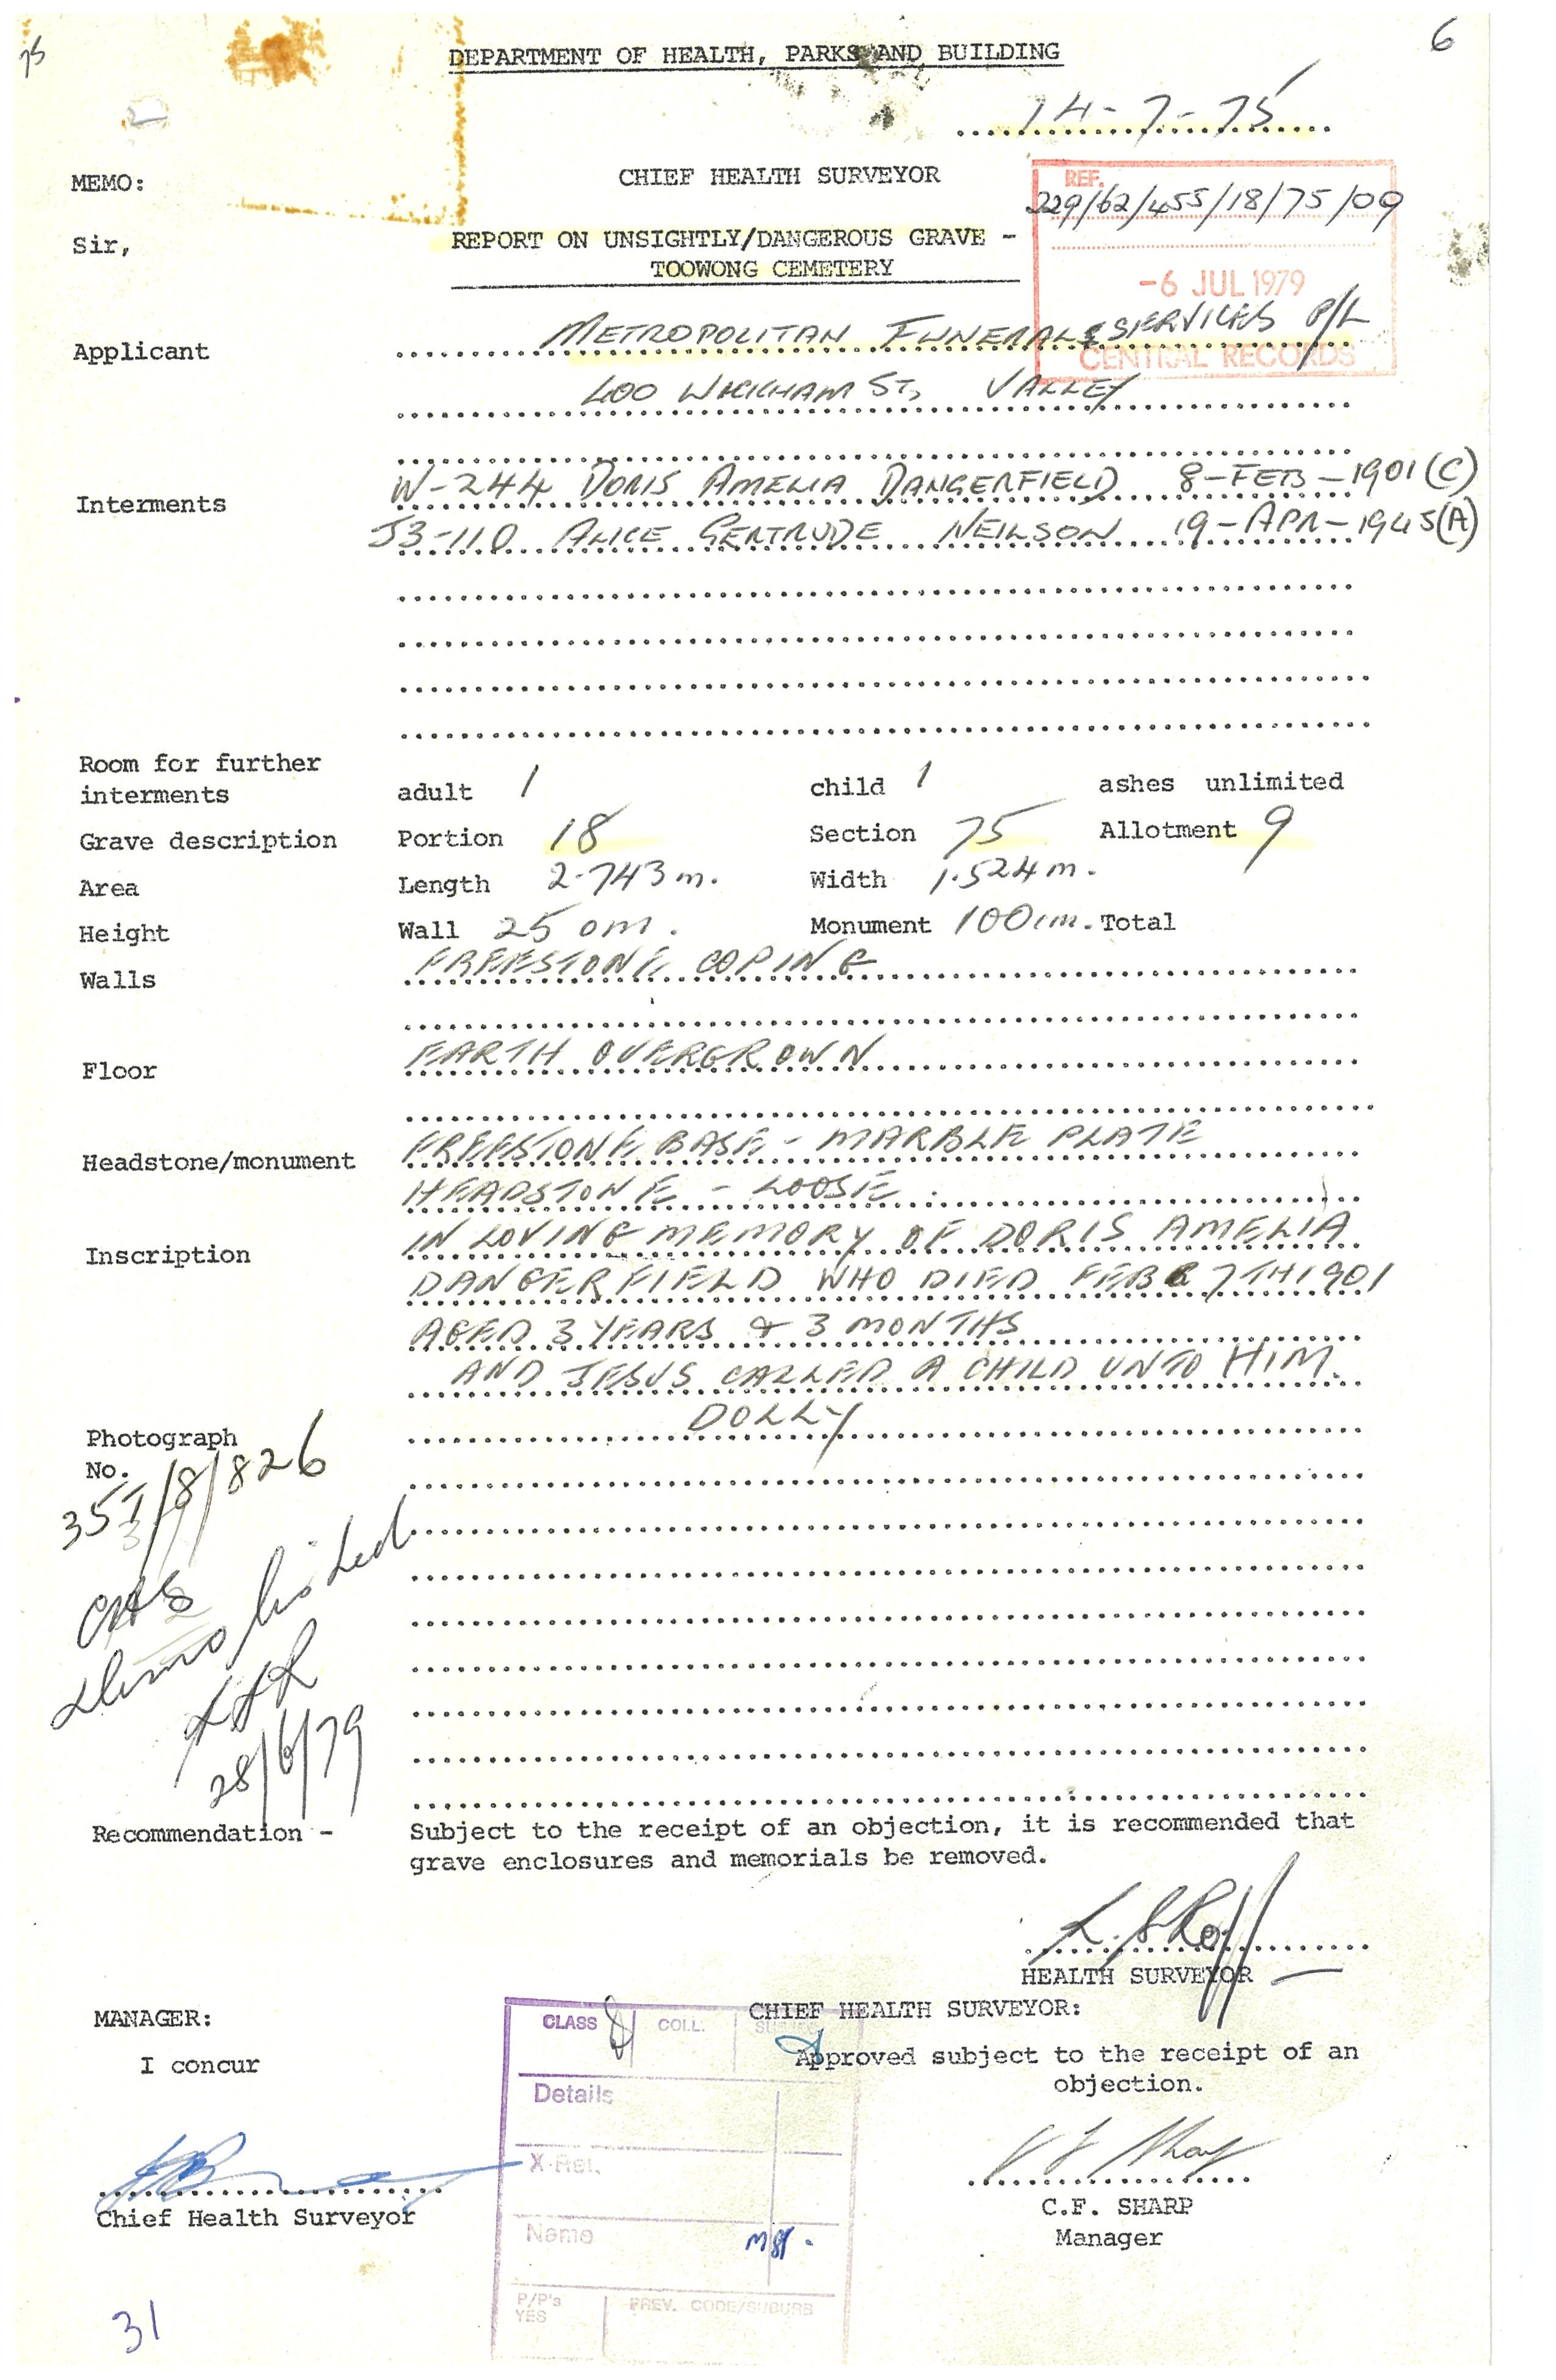 75
6
DEPARTMENT OF HEALTH, PARKS AND BUILDING
14-7-75
MEMO:
CHIEF HEALTH SURVEYOR
REF.
229/62/455/18/75/09
Sir,
REPORT ON UNSIGHTLY/DANGEROUS GRAVE -
TOOWONG CEMETERY
-6 JUL 1979
CENTRAL RECORDS
Applicant METROPOLITAN FUNERAL SERVICES P/L
400 WICKHAM ST, VALLEY
Interments W-244 DORIS AMELIA DANGERFIELD 8-FEB-1901 (C)
J3-110 ALICE GERTRUDE NEILSON 19-APR-1945 (A)
Room for further
interments adult 1 child 1 ashes unlimited
Grave description Portion 18 Section 75 Allotment 9
Area Length 2.743 m. Width 1.524 m.
Height Wall 25 cm. Monument 100 cm. Total
Walls FREESTONE COPING
Floor EARTH OVERGROWN
Headstone/monument FREESTONE BASE - MARBLE PLATE
HEADSTONE - LOOSE.
Inscription IN LOVING MEMORY OF DORIS AMELIA
DANGERFIELD WHO DIED FEB 7TH 1901
AGED 3 YEARS & 3 MONTHS
AND JESUS CALLED A CHILD UNTO HIM.
DOLLY
Photograph
No.
/8/826
CHS
demolished
28/6/79
Recommendation - Subject to the receipt of an objection, it is recommended that
grave enclosures and memorials be removed.
HEALTH SURVEYOR
MANAGER:
I concur
Chief Health Surveyor
CLASS COLL.
Details
X-Ref.
Name
P/P's
YES
PREV. CODE/SUBURB
CHIEF HEALTH SURVEYOR:
Approved subject to the receipt of an
objection.
C.F. SHARP
Manager
31